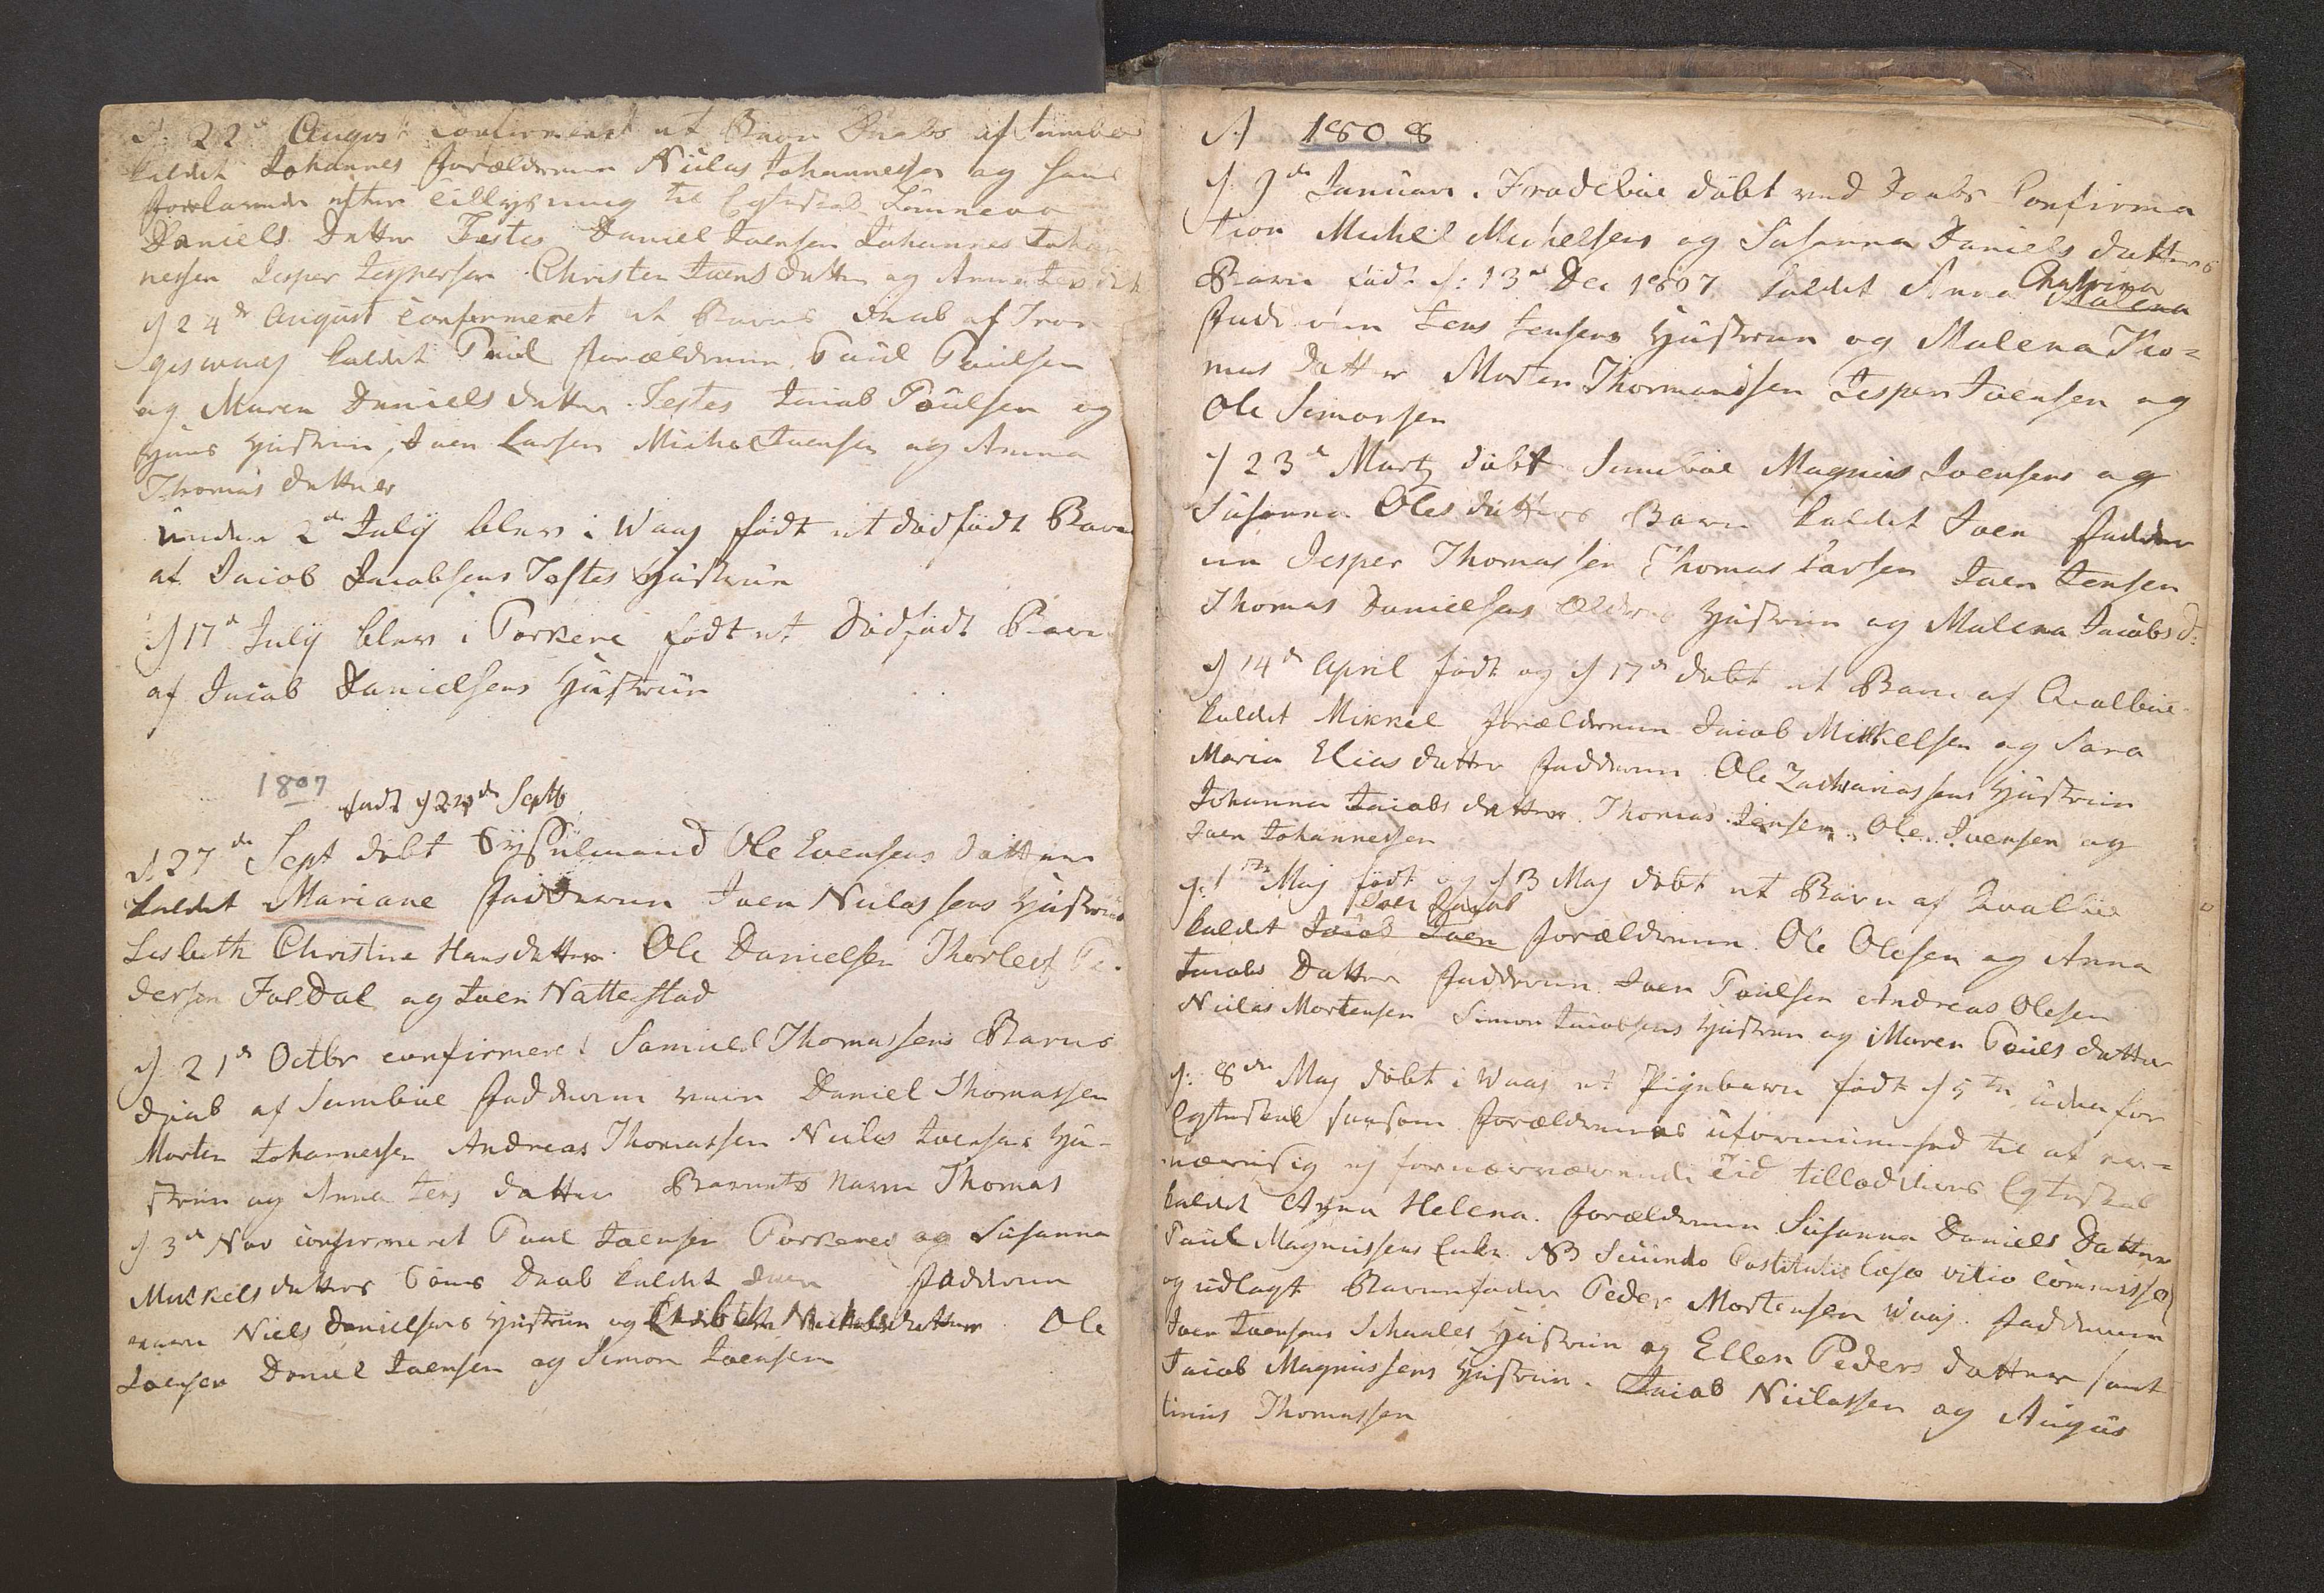 d: 22d August confirmeret et Barn Daab af Sumbøe
kaldet Johannes Forældrene Niclas Johannessen og hans
forlovende efter tillysning til Egteskab Sunneva
Daniels Datter Testes Daniel Joensen Johannes Johan
nessen Jesper Jespersen Christen Joens Datter og Anna Jens dat
d 24de August confirmeret et Barns daab af Tron
giswaag kaldet Poul Forældrene Poul Poulsen
og Maren Daniels datter. Testes Jacob Poulsen og
hans Hustrue, Joen Larsen Michel Joensen og Anna
Thomas datter
under 2de July blev i Waag født et dødfødt Barn
af Jacob Jacobsens Toftes Hustrue
d 17de July blev i Porkere født et Dødfødt Barn
af Jacob Danielsens Hustrue
1807
født d 24de Septb
d 27de Sept døbt Sysselmand Ole Evensens datter
kaldet Mariane Fadderne Joen Niclassens Hustrue
Lisbeth Christine Hansdatter. Ole Danielsen Thorleif Pe-
dersen Foldal og Joen Nattestad
d 21de Octbr confirmeret Samuel Thomassens Barns
daab af Sumbøe Fadderne vare Daniel Thomassen
Morten Johannessen Andreas Thomassen Niclas Joensens Hu-
strue og Anna Jens datter Barnets Navn Thomas
d 3de Nov confirmeret Poul Joensen Porkeres og Susanna
Mickelsdatters Søns Daab kaldet Joen Fadderne
vare Niels Danielsens Hustrue og Lisbeth Michelsdatter. Ole
Joensen Daniel Joensen og Simon Joensen
A 1808
d. 9de Januari. Frodebøe døbt ved Daabs Confirma
tion Michel Michelsens og Susanna Daniels datters
Barn født d: 13de Dec 1807 kaldet Anna Chatrina Malena
Fadderne Jens Jensens Hustrue og Malena Tho=
mas Datter Morten Thormandsen Jesper Joensen og
Ole Simonsen
d 23de Martz døbt Sumbøe Magnus Joensens og
Susanna Oles datters Barn kaldet Joen Fadder
ne Jesper Thomassen Thomas Larsen Joen Jensen
Thomas Danielsens Hustrue og Malena Jacobs d:
d 14de April født og d 17de døbt et Barn af Qvalbøe
kaldet Mikkel Forældrene Jacob Mikkelsen og Sara
Maria Elias datter Fadderne Ole Zachariassens Hustrue
Johanna Jacobs datter. Thomas Jensen. Ole Joensen og
Joen Johannessen
d: 1ste Maj født og d 13 Maj døbt et Barn af Qvalbøe
Joen Jacob
kaldet Jacob Joen Forældrene. Ole Olesen og Anna
Jacobs Datter Fadderne. Joen Poulsen Andreas Olesen
Niclas Mortensen Simon Jacobsens Hustrue og Maren Pouls datter
d: 8de Maj døbt i Waag et Pigebarn født d 5te udenfor
Egteskab saasom Forældrenes uformuenhed til at er=
nære sig ej for nærværende Tid tillod dem Egteskab
kaldet Anna Helena. Forældrene Susanna Daniels Datter
Poul Magnussens Enke NB Secundo Castitatis læsæ vitio commisso
og udlagt Barnefader Peder Mortensen Waag. Fadderne
Joen Joensens Schaales Hustrue og Ellen Peders datter samt
Jacob Magnussens Hustrue. Jacob Niclassen og Augus
tinus Thomassen